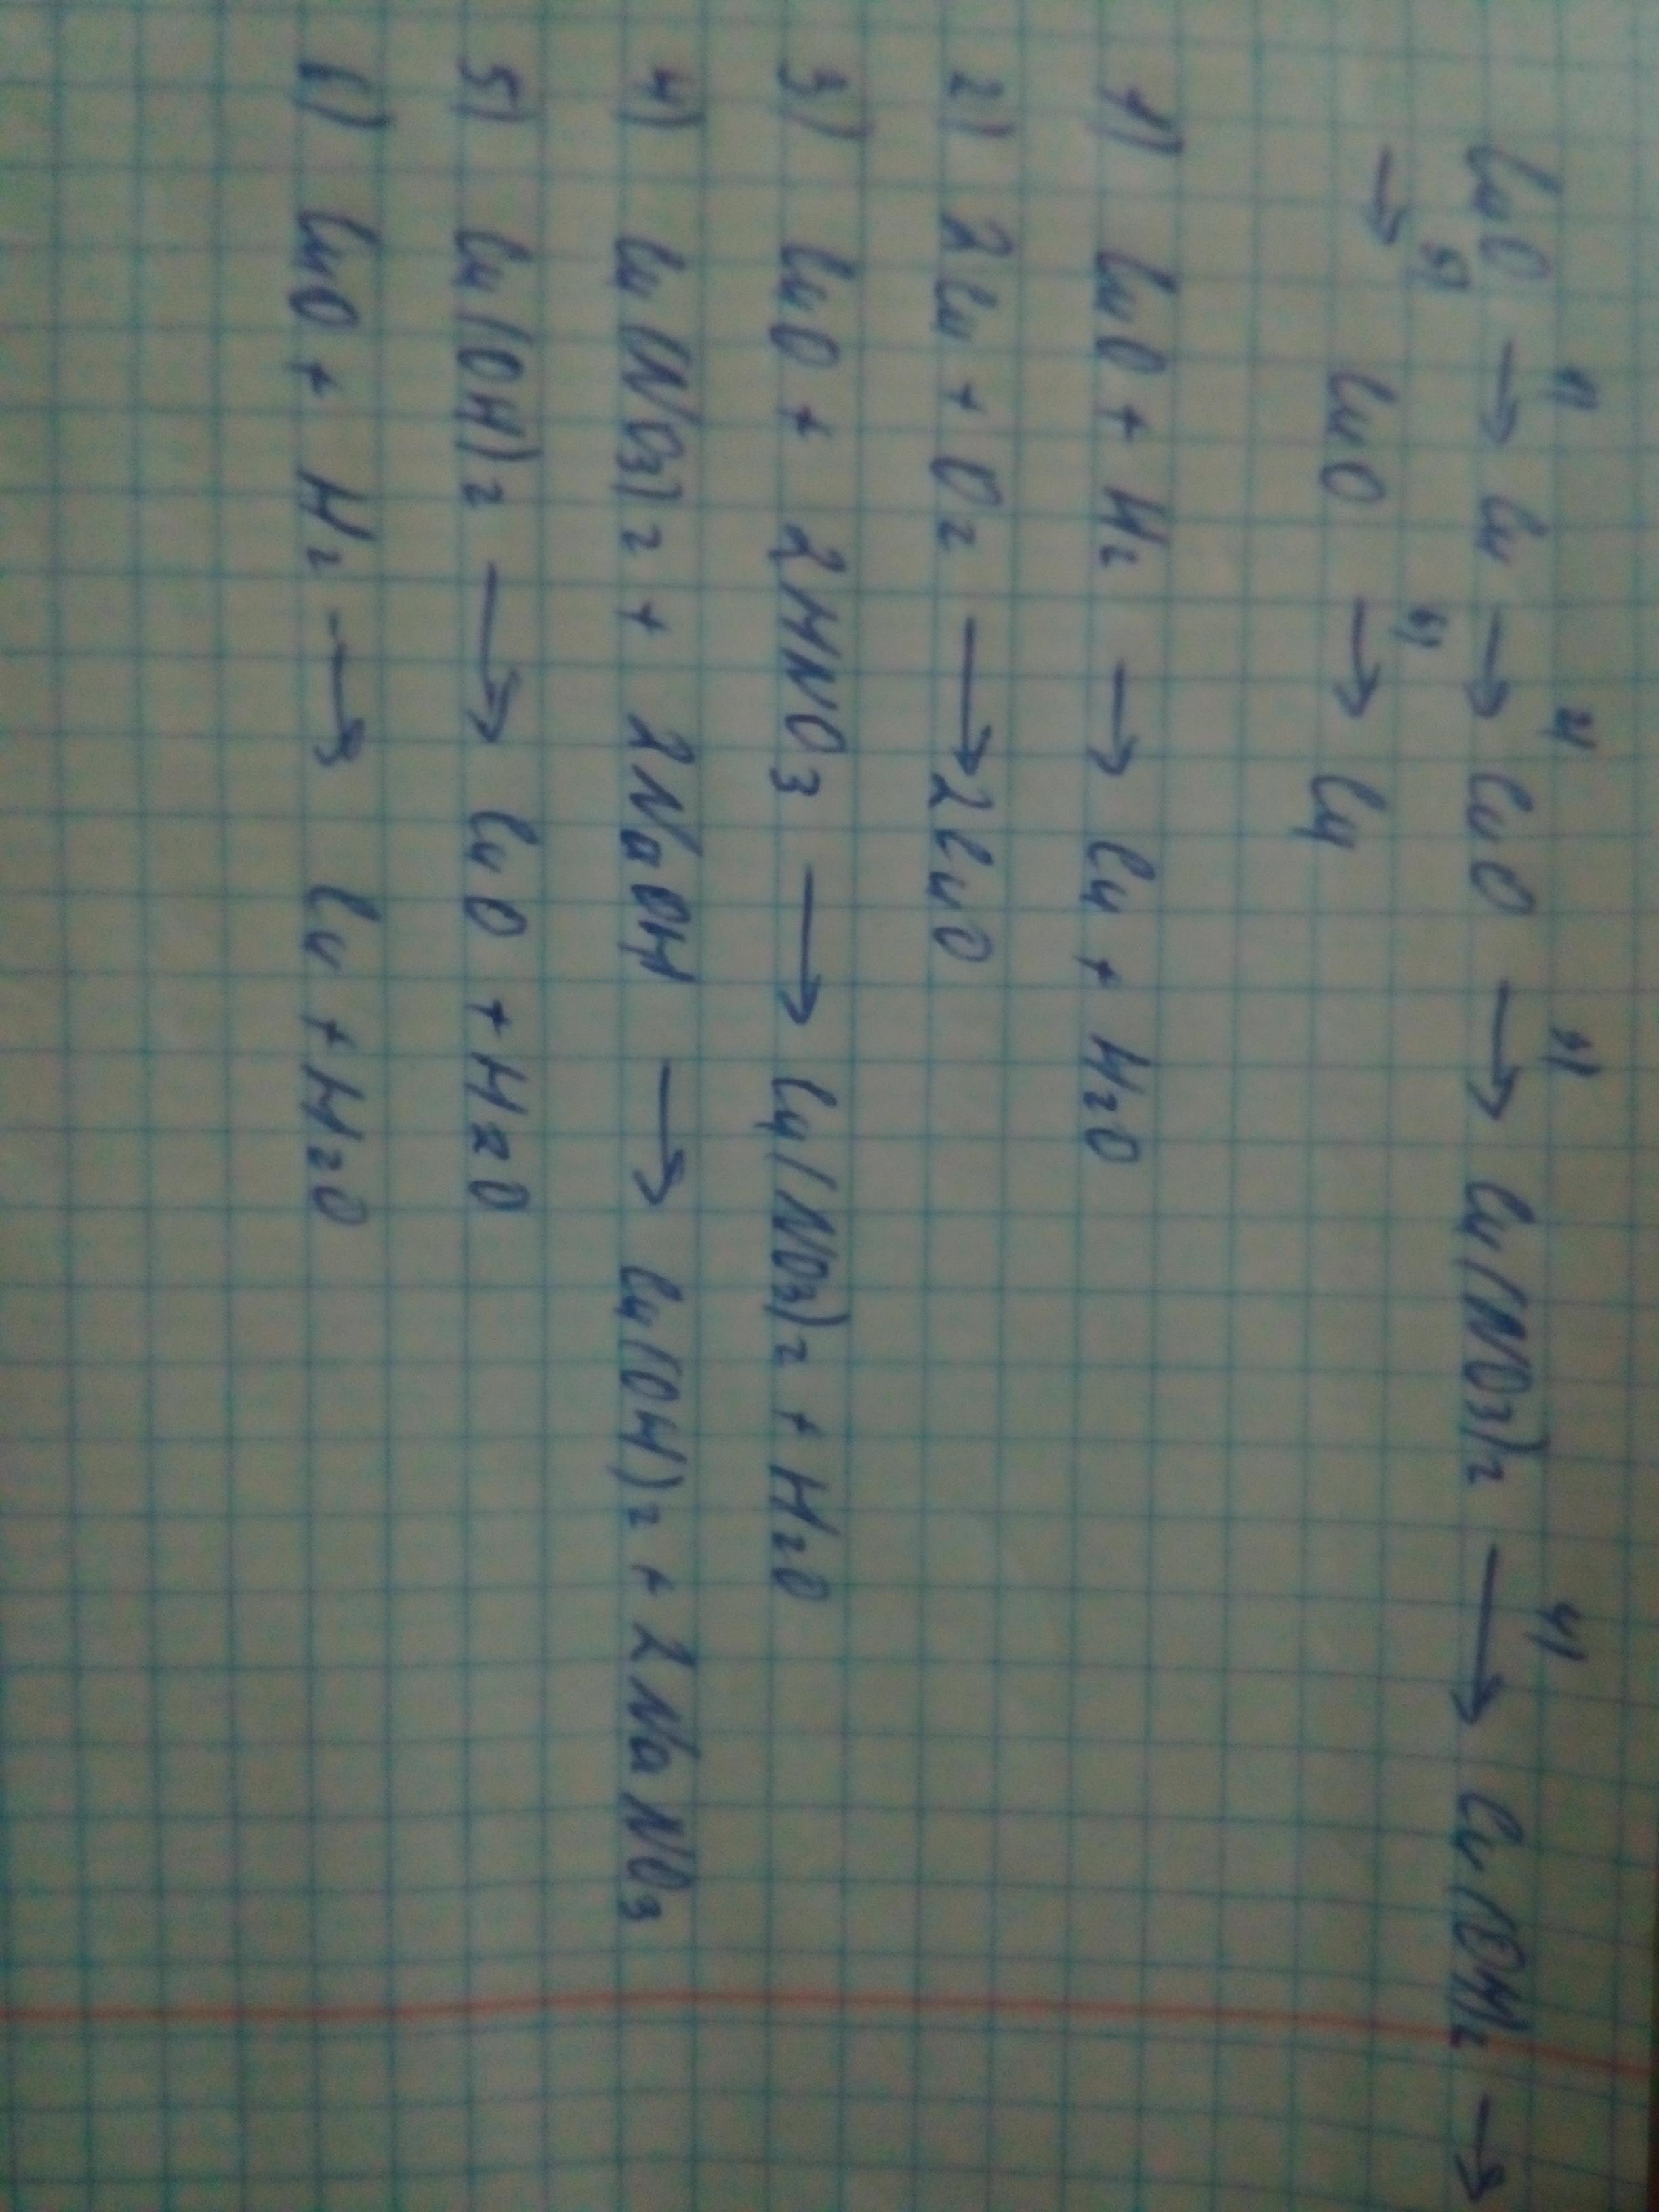 CuO 1)→ Cu 2)→ CuO 3)→ Cu(NO3)2 4)→ Cu(OH)2 →
5)→ CuO 6)→ Cu
1) CuO + H2 → Cu + H2O
2) 2Cu + O2 → 2CuO
3) CuO + 2HNO3 → Cu(NO3)2 + H2O
4) Cu(NO3)2 + 2NaOH → Cu(OH)2 + 2NaNO3
5) Cu(OH)2 → CuO + H2O
6) CuO + H2 → Cu + H2O